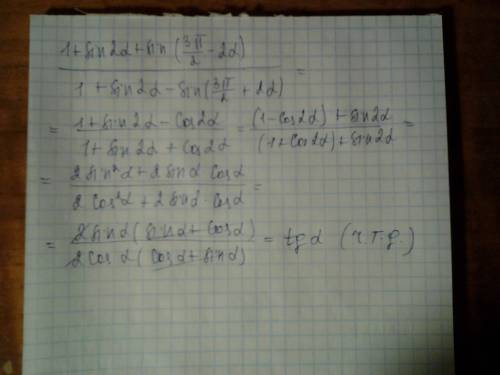 1 + sin 2α + sin (3π/2 - 2α)
1 + sin 2α - sin (3π/2 + 2α) =
= 1 + sin 2α - cos 2α / 1 + sin 2α + cos 2α = (1 - cos 2α) + sin 2α / (1 + cos 2α) + sin 2α =
= 2 sin²α + 2 sin α cos α / 2 cos²α + 2 sin α · cos α =
= 2 sin α (sin α + cos α) / 2 cos α (cos α + sin α) = tg α (ч.т.д.)